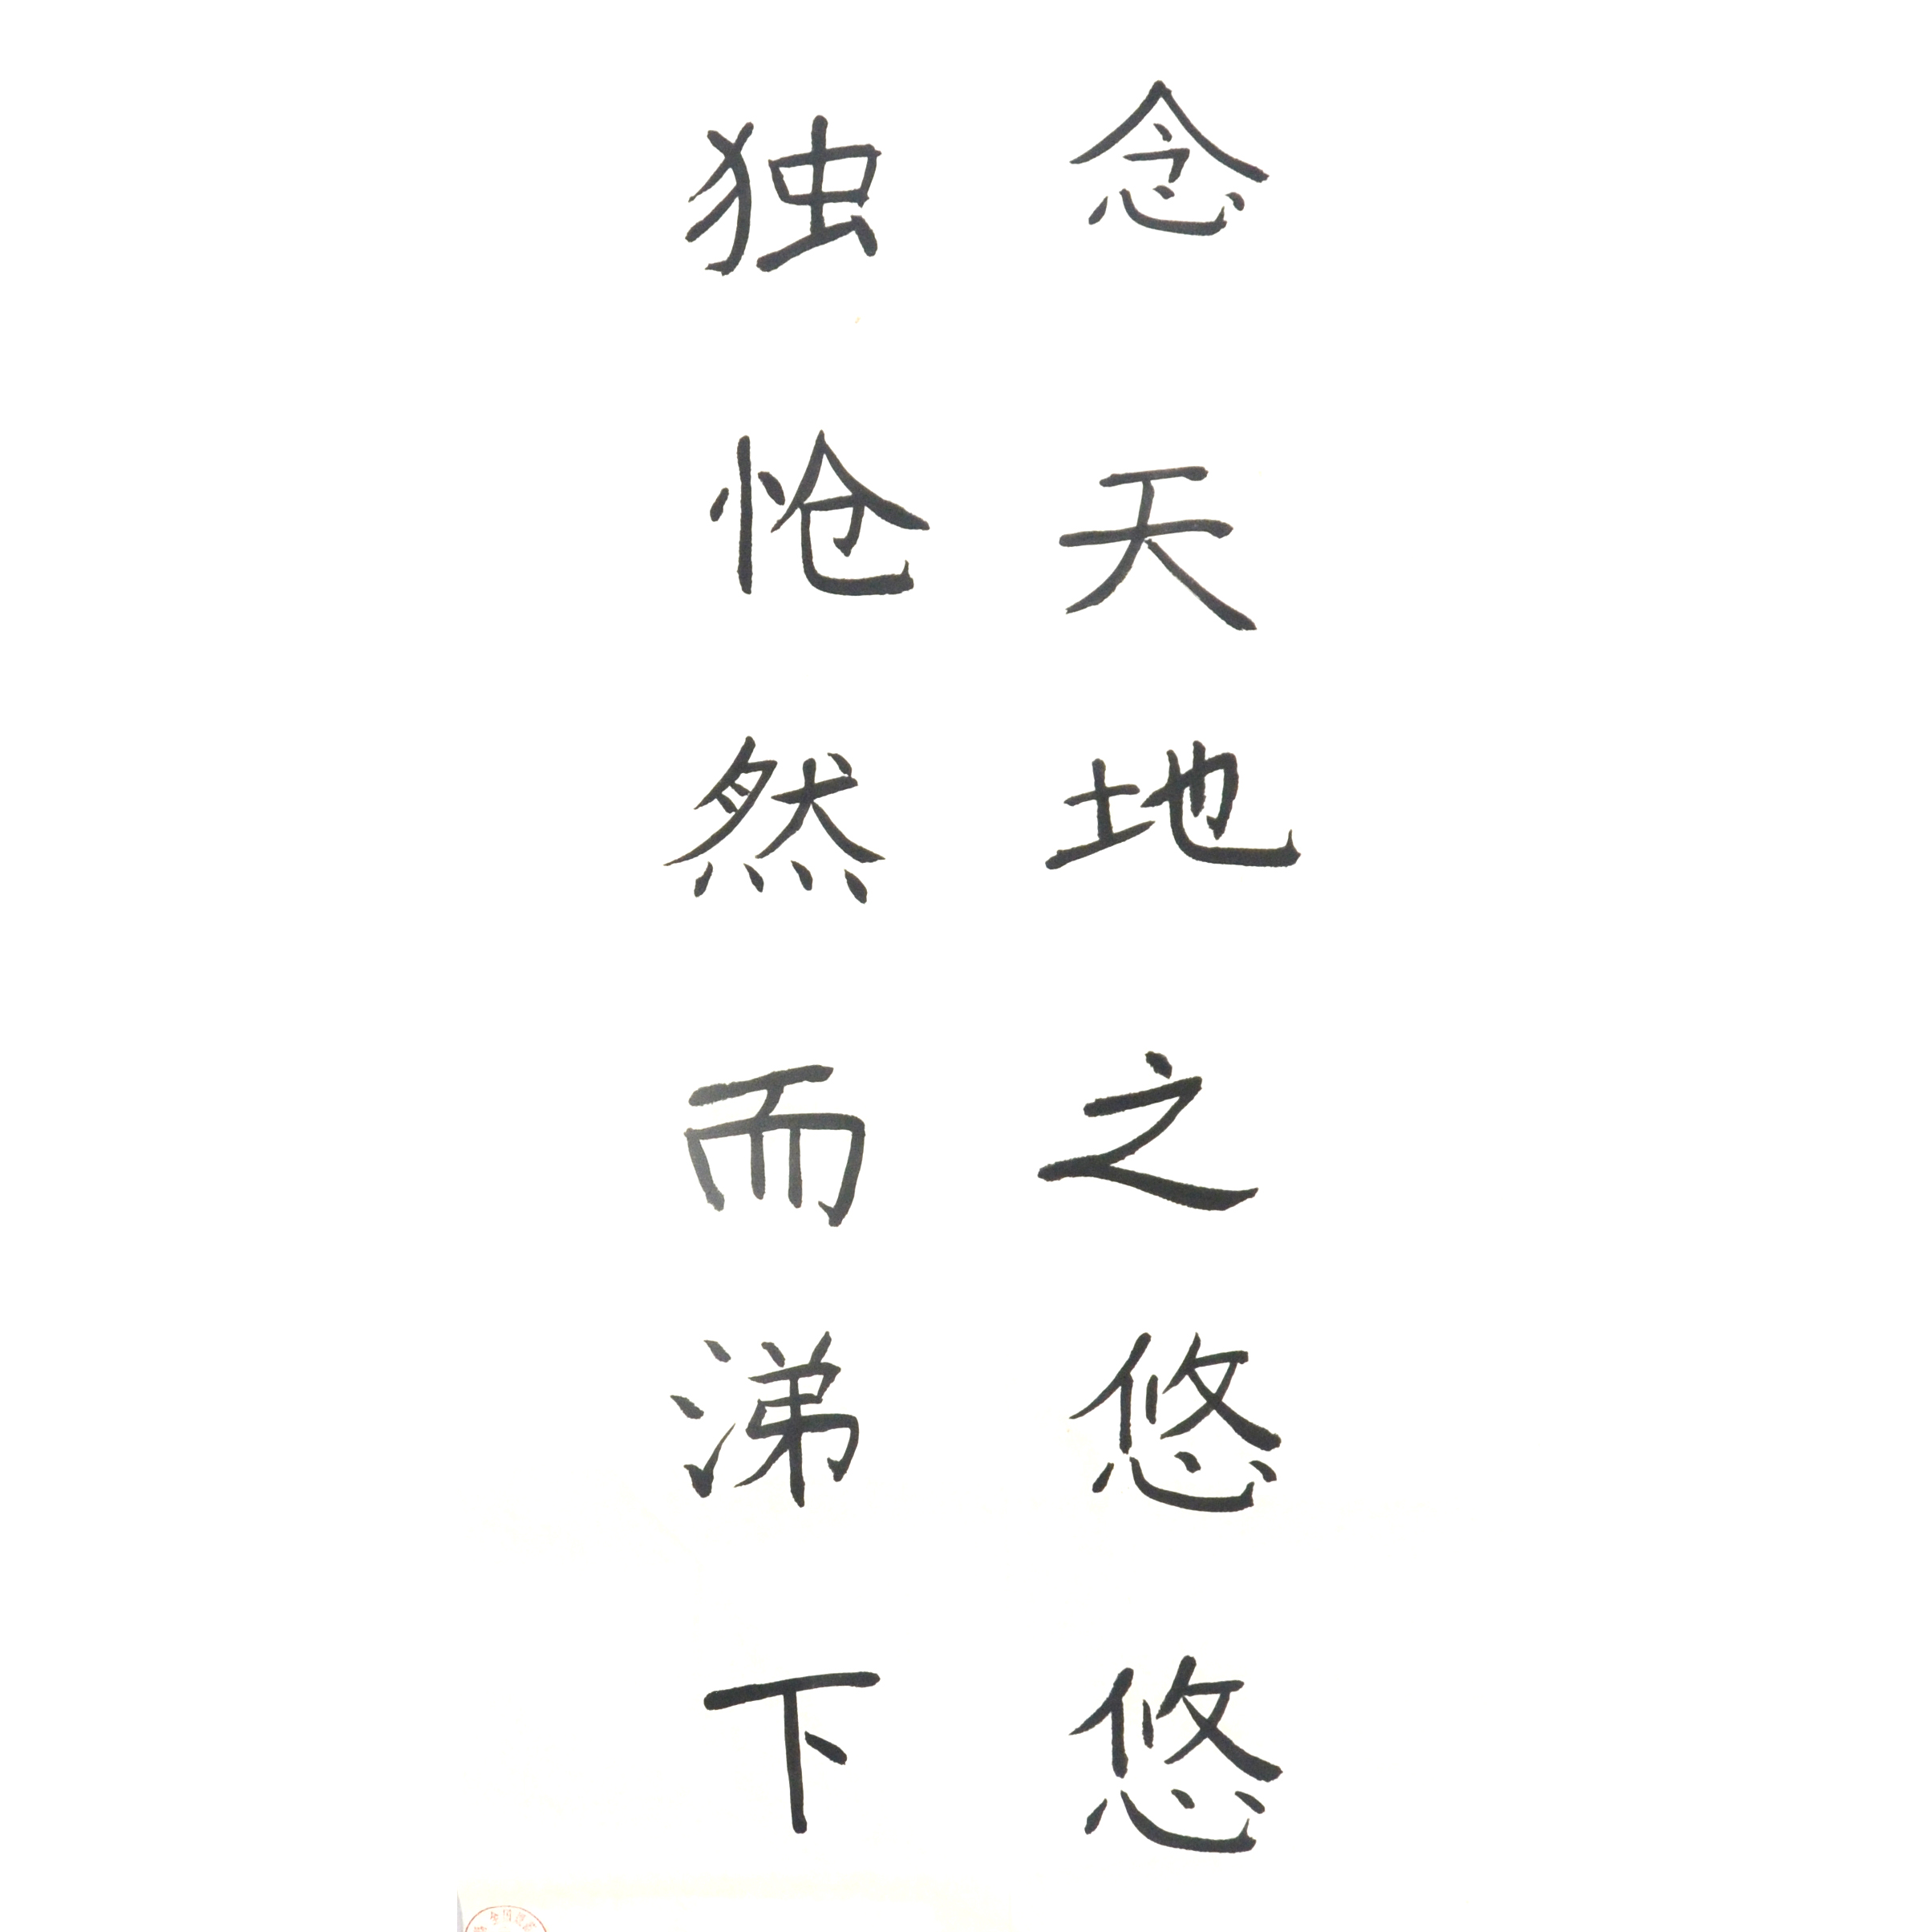 念天地之悠悠
独怆然而涕下